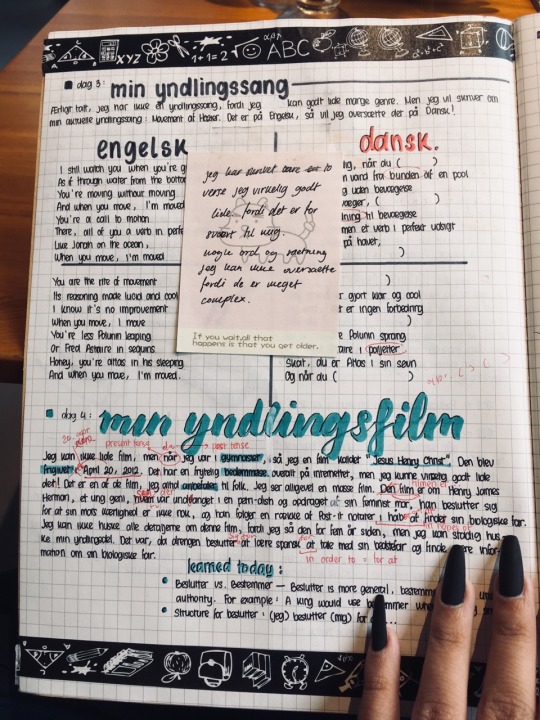 XYZ
1+1=2
αβπ
ABC
dag 3: min yndlingssang
Ærligt talt, jeg har ikke en yndlingssang, fordi jeg kan godt lide mange genre. Men jeg vil skriver om
min aktuelle yndlingssang: Movement af Hozier. Det er på Engelsk, så vil jeg oversætte det på Dansk!
engelsk
I still watch you when you're g
As if through water from the bottom
You're moving without moving
And when you move, I'm moved
You're a call to motion
There, all of you a verb in perfe
Like Jonah on the ocean,
When you move, I'm moved
You are the rite of movement
Its reasoning made lucid and cool
I know it's no improvement
When you move, I move
You're less Polunin leaping
Or Fred Astaire in sequins
Honey, you're atlas in his sleeping
And when you move, I'm moved.
jeg har
verse jeg virkelig godt
lide, fordi det er for
svært til mig.
nogle ord og sætning
jeg kan ikke oversætte
fordi de er meget
complex.
If you wait, all that
happens is that you get older.
dansk.
ng, når du ( )
n vand fra bunden af en pool
g uden bevægelse
æger, ( )
ning til bevægelse
men et verb i perfekt udsigt
på havet,
gjort klar og cool
r ingen forbedring
Polunin sprang
aire i pailletter
Skat, du er Atlas i sin søvn
Og når du ( )
dag 4: min yndlingsfilm
present tense
da
past tense
Jeg kan ikke lide film, men når jeg var i gymnasiet, så jeg en film kaldet "Jesus Henry Christ". Den blev
frigivet April 20, 2012. Det har en frygtelig bedømmelse overalt på internettet, men jeg kunne virkelig godt lide
det! Det er en af de film, jeg altid anbefaler til folk. Jeg ser alligevel en masse film. Den film er om Henry James
Herman, et ung geni, hvem var undfanget i en petri-dish og opdraget af sin feminist mor, han beslutter sig
for at sin mors kærlighed er ikke nok, og han følger en række af Post-it notater i håb af finder sin biologiske far.
Jeg kan ikke huske alle detaljerne om denne film, fordi jeg så den for fem år siden, men jeg kan stadig hus
ke min yndlingsdel. Det var, da drengen beslutter at lære spansk at tale med sin bedstefar og finde
mation om sin biologiske far.
in order to = for at
learned today:
Beslutter vs. Bestemmer – Beslutter is more general, bestemm
authority. For example: A king would use
Structure for beslutter: (jeg) beslutter (mig) for